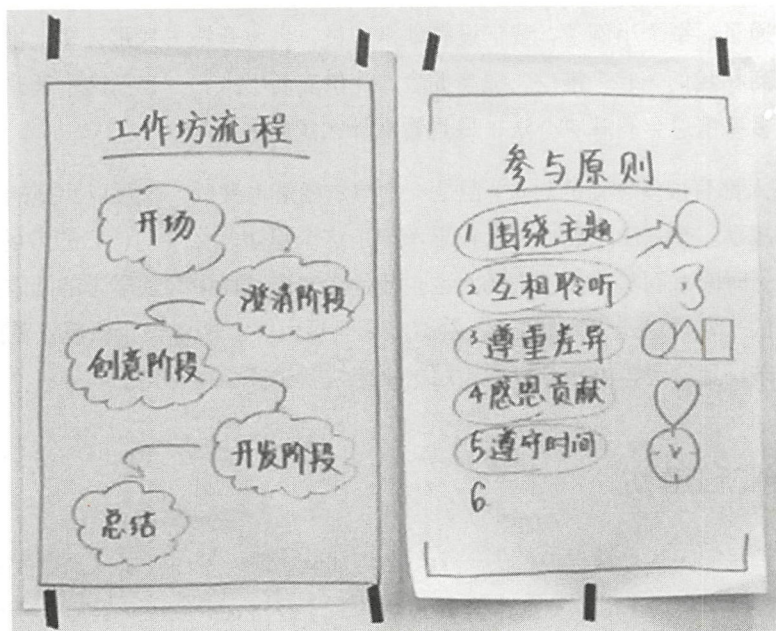 工作坊流程
开场
澄清阶段
创意阶段
开发阶段
总结
参与原则
1 围绕主题
2 互相聆听
3 尊重差异
4 感恩贡献
5 遵守时间
6